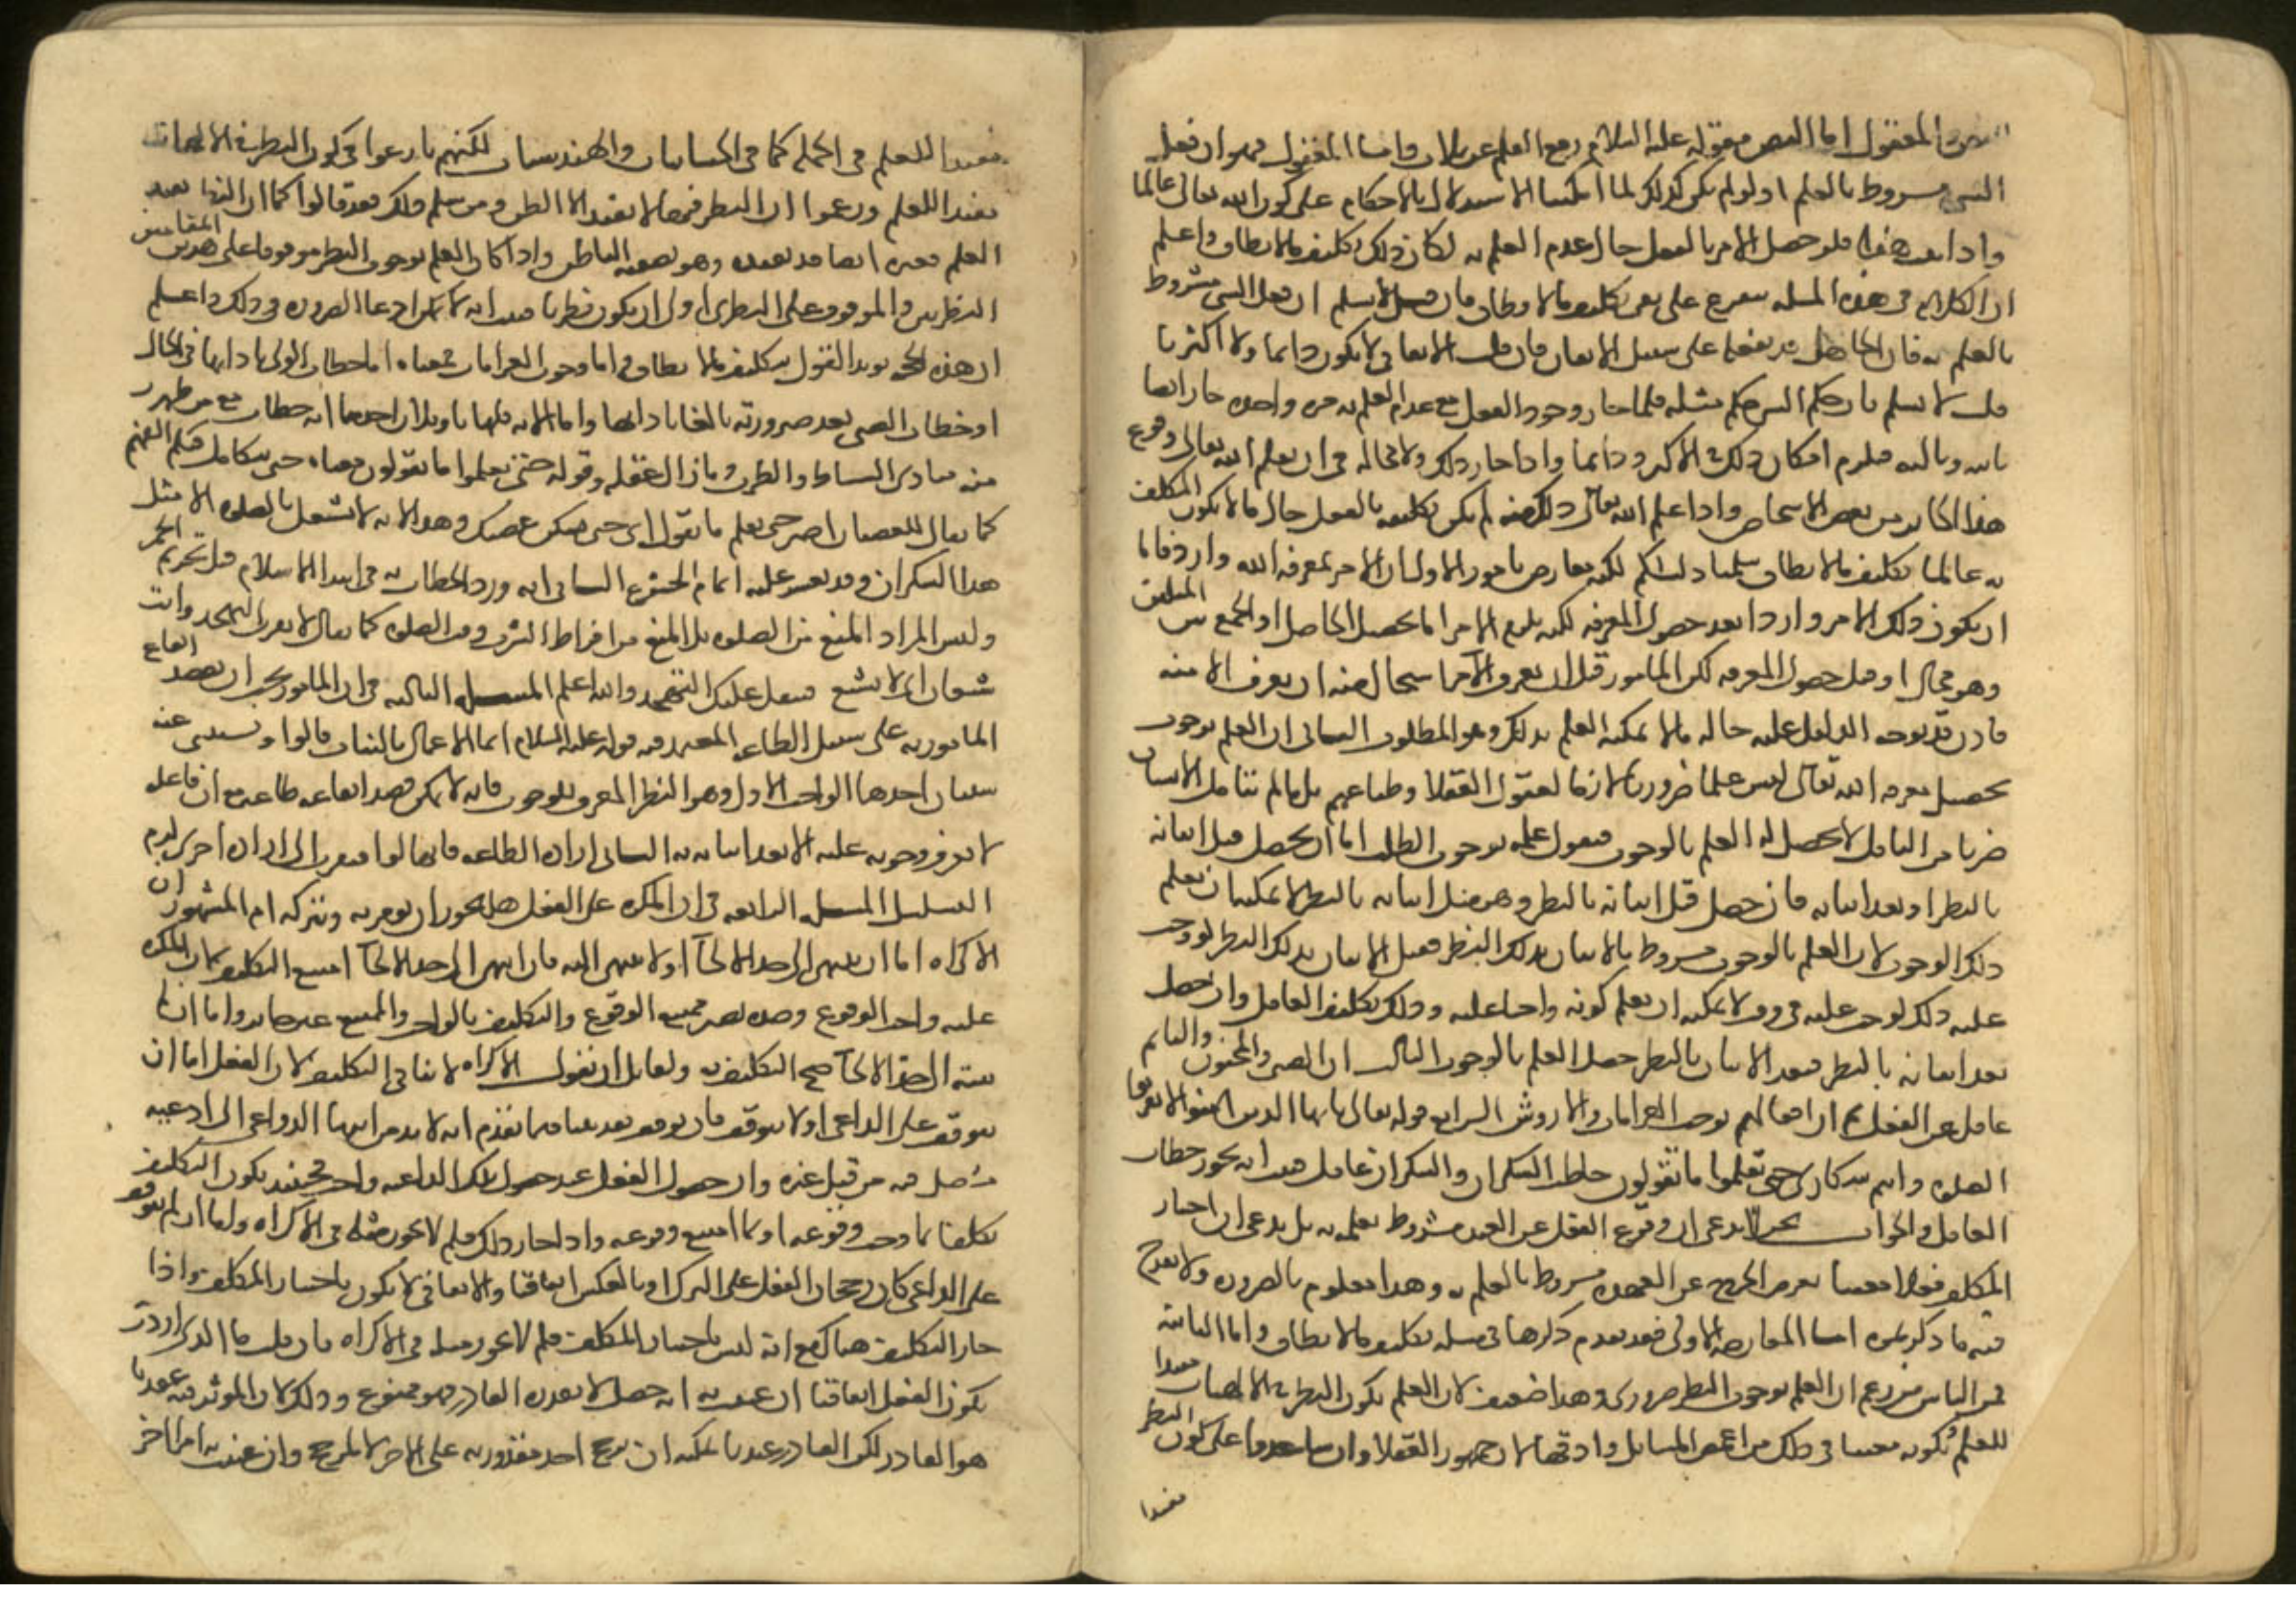 النص والمعقول اما النص فقوله عليه السلام رفع القلم عن ثلاث واما المعقول فهو ان فعل
الشي مشروط بالعلم اذ لو لم يكن كذلك لما امكننا الاستدلال بالاحكام على كون الله تعالى عالما
واذا ثبت هذا فلو حصل الامر بالفعل حال عدم العلم به لكان ذلك تكليف ما لا يطاق واعلم
ان الكلام في هذه المسله يتفرع على نفي تكليف ما لا يطاق فان قيل لا نسلم ان فعل الشي مشروط
بالعلم به فان الجاهل قد يفعل على سبيل الاتفاق فان قلت الاتفاقي لا يكون دايما ولا اكثريا
قلت لا نسلم فان حكم الشي حكم مثله فلما جاز وجود الفعل مع عدم العلم به مره واحده جاز ايضا
ثانيه وثالثه فيلزم امكان ذلك في الاكثر ودايما واذا جاز ذلك ولا محاله في ان يعلم الله تعالى وقوع
هذا الجايز من بعض الاشخاص واذا علم الله تعالى ذلك منه لم يكن تكليفه بالفعل حال ما لا يكون المكلف
به عالما تكليف ما لا يطاق سلمنا دليلكم لكنه معارض بامور الاول ان الامر بمعرفه الله وارد فاما
ان يكون ذلك الامر واردا بعد حصول المعرفه لكنه يلزم الامر اما بتحصيل الحاصل او الجمع بين المثلين
وهو محال او قبل حصول المعرفه لكن المامور قبل ان يعرف الآمر استحال منه ان يعرف الامر منه
فاذن قد توجه التكليف عليه حاله ما لا يمكنه العلم بذلك وهو المطلوب الثاني ان العلم بوجوب
تحصيل معرفه الله تعالى ليس علما ضروريا لازما لعقول العقلا وطباعهم بل ما لم يتامل الانسان
ضربا من التامل لا يحصل له العلم بالوجوب فنقول علمه بوجوب الطلب اما ان يحصل قبل اتيانه
بالنظر او بعد اتيانه فان حصل قبل اتيانه بالنظر وهو قبل اتيانه بالنظر لا يمكنه ان يعلم
ذلك الوجوب لان العلم بالوجوب مشروط بالاتيان بذلك النظر فقبل الاتيان بذلك النظر لو وجب
عليه ذلك لوجب عليه في وقت لا يمكنه ان يعلم كونه واجبا عليه وذلك تكليف الغافل وان حصل
بعد اتيانه بالنظر فبعد الاتيان بالنظر حصل العلم بالوجوب الثالث ان الصبي والمجنون والنايم
غافل عن الفعل ثم ان افعالهم توجب الغرامات والاروش الرابع قوله تعالى يا ايها الذين امنوا لا تقربوا
الصلوه وانتم سكارى حتى تعلموا ما تقولون خاطب السكران والسكران غافل فثبت انه يجوز خطاب
الغافل والجواب نحن لا ندعي ان وقوع الفعل عن العبد مشروط بعلمه به بل ندعي ان اختيار
المكلف فعلا معينا لغرض الخروج عن العهده مشروط بالعلم به وهذا معلوم بالضروره ولا يقدح
فيه ما ذكرتموه اما المعارضه الاولى فقد تقدم ذكرها في مسله تكليف ما لا يطاق واما الثانيه
فمن الناس من زعم ان العلم بوجوب النظر ضروري وهذا ضعيف لان العلم بكون النظر في الالهيات مفيدا
للعلم وبكونه معينا في ذلك من اغمض المسايل وادقها لان جمهور العقلا وان ساعدوا على كون النظر
مفيدا
مفيدا للعلم في الجمله كما في الحسابيات والهندسيات لكنهم نازعوا في كون النظر في الالهيات
مفيدا للعلم وزعموا ان النظر فيها لا يفيد الا الظن ومن سلم ذلك فقد قالوا كما ان النظر يفيد
العلم فغيره ايضا قد يفيده وهو تصفيه الباطن واذا كان العلم بوجوب النظر موقوفا على هذين المقامين
النظريين والموقوف على النظري اولى ان يكون نظريا فثبت انه لا يمكن ادعا الضروره في ذلك واعلم
ان هذه الحجه تويد القول بتكليف ما لا يطاق واما وجوب الغرامات فمعناه اما خطاب الولي بادايها في الحال
او خطاب الصبي بعد صيرورته بالغا بادايها واما الايه فلها تاويلان احدهما انه خطاب مع من ظهر
منه مبادي النشاط والطرب وما زال عقله وقوله حتى تعلموا ما تقولون معناه حتى يتكامل فيكم الفهم
كما يقال للغضبان اصبر حتى تعلم ما تقول اي حتى يسكن غضبك وهذا لانه لا يشتغل بالصلوه الا مثل
هذا السكران وقد يعسر عليه اتمام الخشوع الثاني انه ورد الخطاب به في ابتدا الاسلام قبل تحريم الخمر
وليس المراد المنع من الصلوه بل المنع من افراط الشرب وقت الصلوه كما يقال لا تقرب التهجد وانت
شبعان اي لا تشبع فيثقل عليك التهجد والله اعلم المسله الثالثه في ان المامور يجب ان يقصد ايقاع
المامور به على سبيل الطاعه المعتمد فيه قوله عليه السلام انما الاعمال بالنيات قالوا ويستثنى عنه
شييان احدهما الواجب الاول وهو النظر المعرف للوجوب فانه لا يمكن قصد ايقاعه طاعه مع ان فاعله
لا يعرف وجوبه عليه الا بعد اتيانه به الثاني اراده الطاعه فانها لو افتقرت الى اراده اخرى لزم
التسلسل المسله الرابعه في ان المكره على الفعل هل يجوز ان يومر به وبتركه ام لا المشهور ان
الاكراه اما ان ينتهي الى حد الالجآ او لا ينتهي اليه فان انتهى الى حد الالجآ امتنع التكليف لان المكره
عليه واجب الوقوع وضده يصير ممتنع الوقوع والتكليف بالواجب والممتنع غير جايز واما ان لم
ينته الى حد الالجآ صح التكليف به ولقايل ان يقول الاكراه لا ينافي التكليف لان الفعل اما ان
يتوقف على الداعي او لا يتوقف فان توقف فقد بينا فيما تقدم انه لا بد من انتها الدواعي الى داعيه
تحصل فيه من قبل غيره وان حصول الفعل عند حصول تلك الداعيه واجب فحينئذ يكون التكليف
تكليفا بما وجب وقوعه او بما امتنع وقوعه واذا جاز ذلك فلم لا يجوز مثله في الاكراه واما ان لم يتوقف
على الداعي كان رجحان الفعل على الترك او بالعكس اتفاقيا والاتفاقي لا يكون باختيار المكلف واذا
جاز التكليف هناك مع انه ليس باختيار المكلف فلم لا يجوز مثله في الاكراه فان قلت ما الذي اردت
بكون الفعل اتفاقيا ان عنيت به انه حصل لا بقدره القادر فهو ممنوع وذلك لان الموثر فيه عندنا
هو القادر لكن القادر عندنا يمكنه ان يرجح احد مقدوريه على الاخر لا لمرجح وان عنيت به امرا اخر